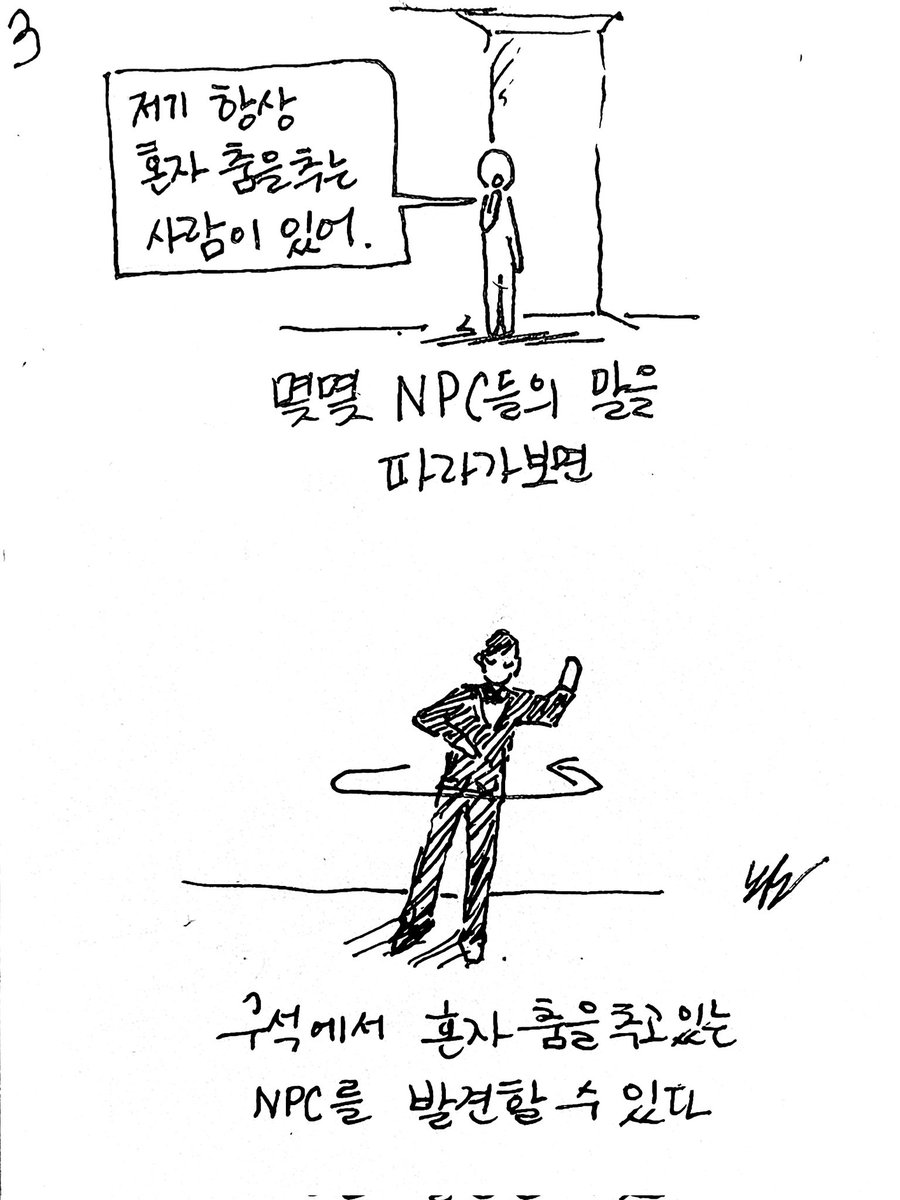 3
저기 항상
혼자 춤을추는
사람이 있어.
몇몇 NPC들의 말을
따라가보면
구석에서 혼자 춤을추고있는
NPC를 발견할 수 있다